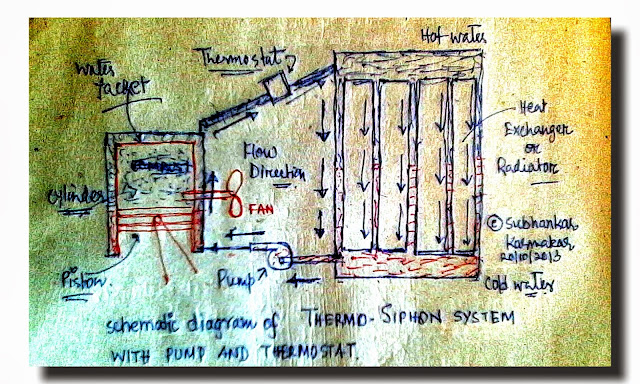 Hot water
Thermostat
Water
Jacket
Heat
Exchanger
or
Radiator
Flow
Direction
Cylinder
FAN
© Subhankar
Karmakar
20/10/2013
Piston
Pump
Cold water
schematic diagram of THERMO-SIPHON SYSTEM
WITH PUMP AND THERMOSTAT.